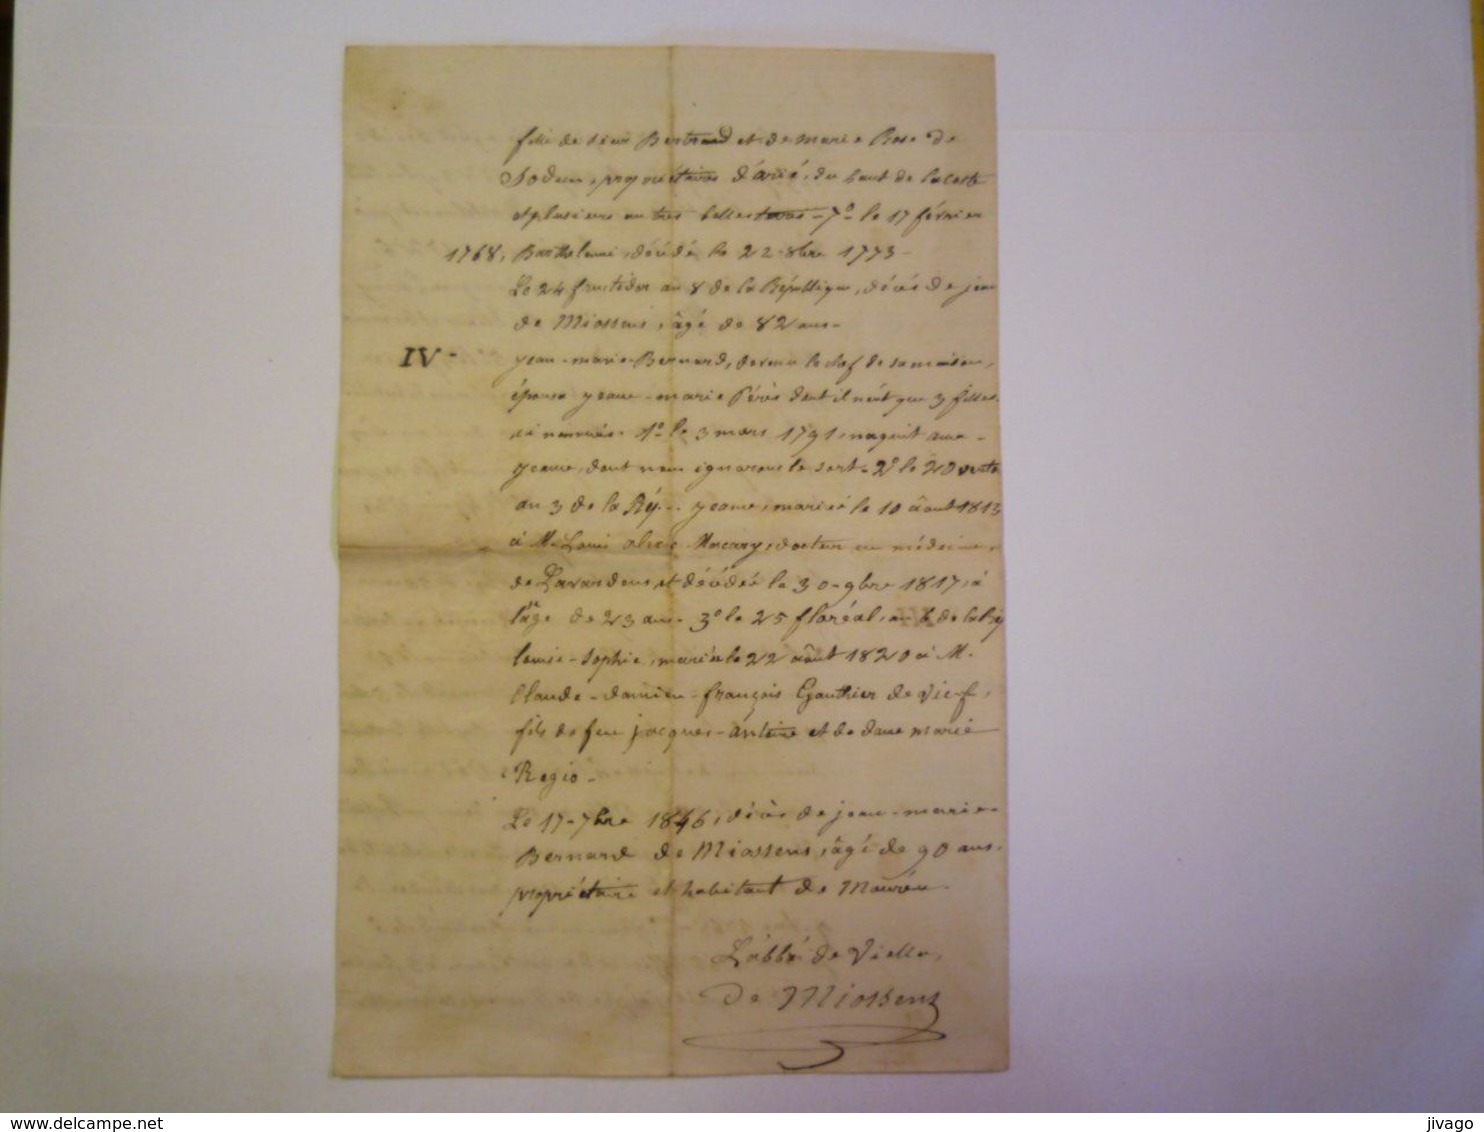 fille de sieur Bertrand et de marie Rose de
propriétaires d'arié, du haut de lacoste
et plusieurs autres belles terres - 7° le 17 février
1768, Barthelemi, décédé le 22 8bre 1773 -
Le 24 fructidor an 8 de la République, décès de jean
de Miossens, âgé de 82 ans -
IV - jean-marie-Bernard, devenu le chef de sa maison,
épousa jeanne-marie Pérès dont il n'eût que 3 filles,
ci nommées. 1° le 3 mars 1791, naquit une
jeanne, dont nous ignorons le sort - 2° le 20
an 3 de la Rép... jeanne, mariée le 10 août 1813
à M. Louis alexis docteur en médecine,
de Lavardens, et décédée le 30 9bre 1817, à
l'âge de 23 ans - 3° le 25 floréal, an 6 de la Rép
louise-Sophie, mariée le 22 août 1820 à M.
Claude-damien-françois Gauthier de
fils de feu jacques-antoine et de dame marie
Regio -
Le 17 7bre 1846, décès de jean-marie-
Bernard de Miossens, âgé de 90 ans,
propriétaire et habitant de
L'abbé de Viella,
de Miossens
delcampe.net
jivago